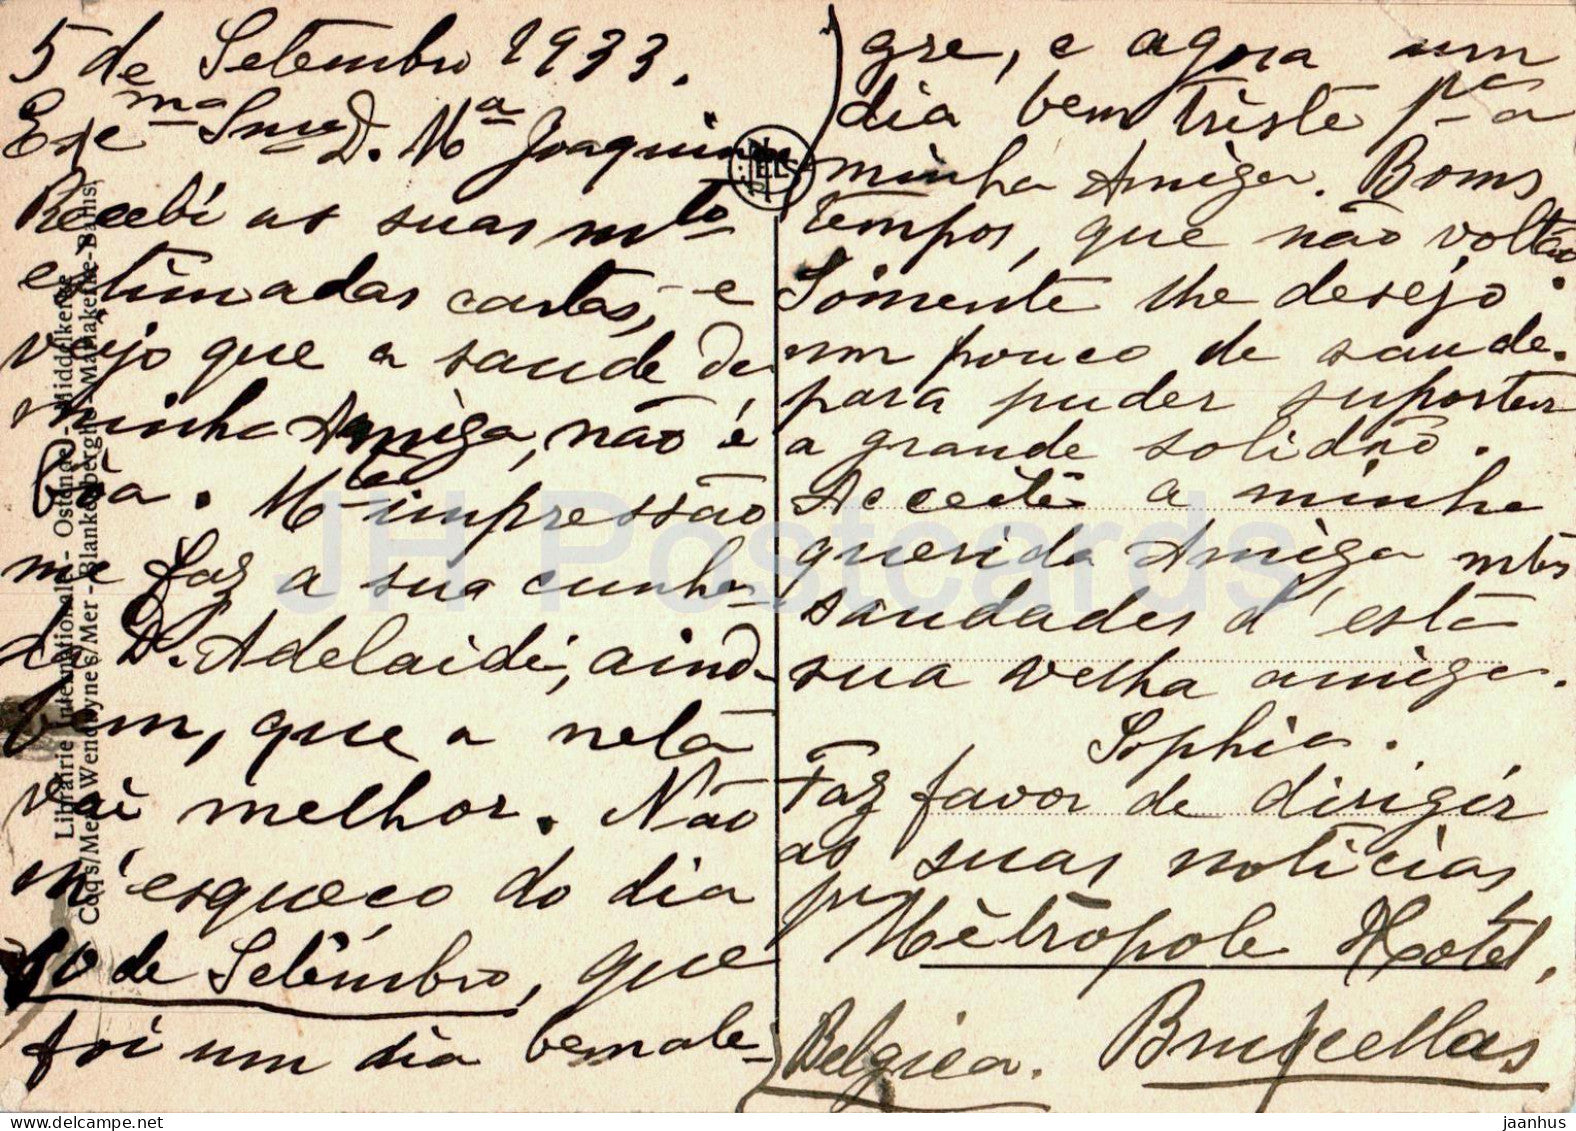 5 de Setembro 1933.
Exc^ma Snra D. M^a Joaquina
Recebi as suas m^to
estimadas cartas, e
vejo que a saude de
minha Amiga, não é
bôa. M^ta impressão
me faz a sua cunha-
da D. Adelaide, aind-
bem, que a neta
vai melhor. Não
m'esqueço do dia
10 de Setembro, que
foi um dia bem ale-
gre, e agora um
dia bem triste p^a a
minha Amiga. Bons
tempos, que não voltão.
Somente lhe desejo
um pouco de saude.
para puder suportar
a grande solidão.
Acceite a minha
querida Amiga mtas
saudades d'esta
sua velha amiga.
Sophia.
Faz favor de dirigir
as suas noticias,
pª Mètropole Hotel,
Belgica. Bruxellas
NELS
Librairie Internationale - Ostende - Middelkerke
Coqs/Mer Wenduyne s/Mer - Blankenberghe - Mariakerke-Bains
JH Postcards
www.delcampe.net
jaanhus